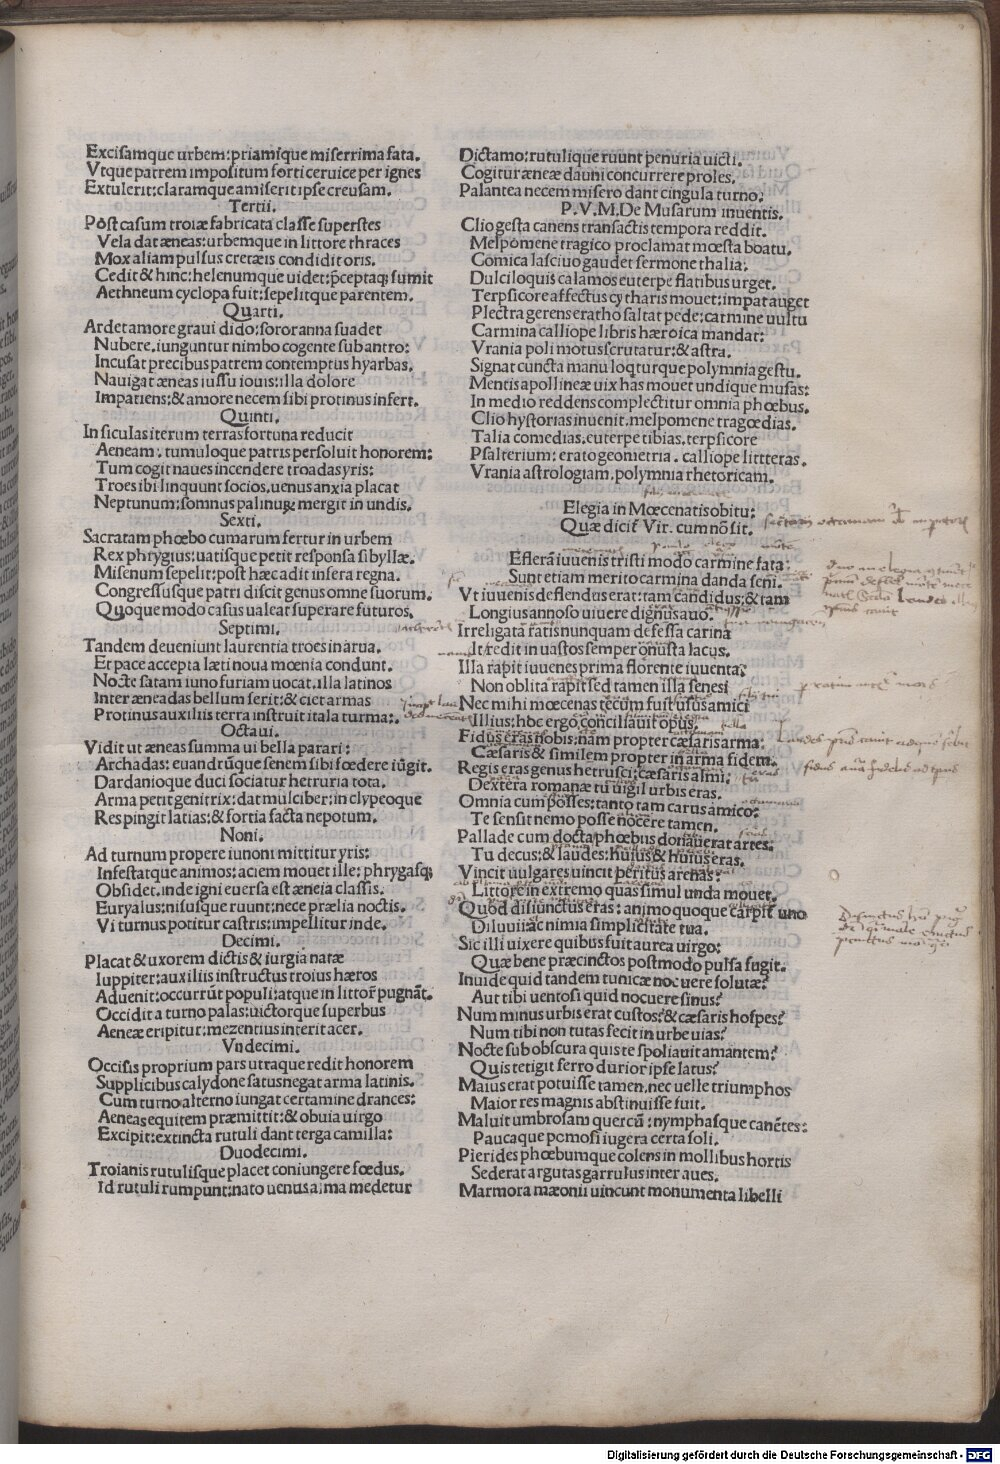 Excisamque urbem:priamique miserrima fata.
Vtque patrem impositum forti ceruice per ignes
Extulerit:claramque amiserit ipse creusam.
Tertii.
Post casum troiæ fabricata classe superstes
Vela dat æneas:urbemque in littore thraces
Mox aliam pulsus cretæis condidit oris.
Cedit & hinc:helenumque uidet:p̄ceptaq; sumit
Aethneum cyclopa fuit:sepelitque parentem.
Quarti.
Ardet amore graui dido:soror anna suadet
Nubere.iunguntur nimbo cogente sub antro:
Incusat precibus patrem contemptus hyarbas.
Nauigat æneas iussu iouis:illa dolore
Impatiens:& amore necem sibi protinus infert.
Quinti.
In siculas iterum terras fortuna reducit
Aeneam: tumuloque patris persoluit honorem:
Tum cogit naues incendere troadas yris:
Troes ibi linquunt socios.uenus anxia placat
Neptunum:somnus palinurum mergit in undis.
Sexti.
Sacratam phœbo cumarum fertur in urbem
Rex phrygius:uatisque petit responsa sibyllæ.
Misenum sepelit:post hæc adit infera regna.
Congressusque patri discit genus omne suorum.
Quoque modo casus ualeat superare futuros.
Septimi.
Tandem deueniunt laurentia troes in arua.
Et pace accepta læti noua mœnia condunt.
Nocte satam iuno furiam uocat.illa latinos
Inter æneadas bellum serit:& ciet armas
Protinus auxiliis terra instruit itala turma:.
Octaui.
Vidit ut æneas summa ui bella parari:
Archadas: euandrūque senem sibi fœdere iūgit.
Dardanioque duci sociatur hetruria tota.
Arma petit genitrix: dat mulciber:in clypeoque
Res pingit latias:& fortia facta nepotum.
Noni.
Ad turnum propere iunoni mittitur yris:
Infestatque animos:aciem mouet ille: phrygasq;
Obsidet.inde igni euersa est æneia classis.
Euryalus:nisusque ruunt:nece prælia noctis.
Vi turnus potitur castris:impellitur inde.
Decimi.
Placat & uxorem dictis & iurgia natæ
Iuppiter:auxiliis instructus troius hæros
Aduenit:occurrūt populi:atque in littor̄ pugnāt.
Occidit a turno palas:uictorque superbus
Aeneæ eripitur:mezentius interit acer.
Vndecimi.
Occisis proprium pars utraque redit honorem
Supplicibus calydone satus negat arma latinis.
Cum turno alterno iungat certamine drances:
Aeneas equitem præmittit:& obuia uirgo
Excipit:extincta rutuli dant terga camilla:
Duodecimi.
Troianis rutulisque placet coniungere fœdus.
Id rutuli rumpunt:nato uenus alma medetur
Dictamo:rutulique ruunt penuria uicti.
Cogitur æneæ dauni concurrere proles.
Palantea necem misero dant cingula turno:
P.V.M.De Musarum inuentis.
Clio gesta canens transactis tempora reddit.
Melpomene tragico proclamat mœsta boatu.
Comica lasciuo gaudet sermone thalia:
Dulciloquis calamos euterpe flatibus urget.
Terpsicore affectus cytharis mouet:impat auget
Plectra gerens eratho saltat pede:carmine uultu
Carmina calliope libris hæroica mandat:
Vrania poli motus scrutatur:& astra.
Signat cuncta manu loqturque polymnia gestu.
Mentis apollineæ uix has mouet undique musas:
In medio reddens complectitur omnia phœbus.
Clio hystorias inuenit.melpomene tragœdias.
Talia comedias.euterpe tibias.terpsicore
Psalterium: erato geometria. calliope littteras.
Vrania astrologiam.polymnia rhetoricam.
Elegia in Mœcenatis obitu:
Quæ dicit Vir. cum nō sit.
Efflerā iuuenis tristi modo carmine fata:
Sunt etiam merito carmina danda seni.
Vt iuuenis deflendus erat:tam candidus:& tam
Longius annoso uiuere dignus auo.
Irreligata ratis nunquam defessa carina
It:redit in uastos semper onusta lacus.
Illa rapit iuuenes prima florente iuuenta:
Non oblita rapit sed tamen illa senesi
Nec mihi mœcenas tecum fuit usus amici
Illius:hoc ergo conciliauit opus.
Fidus eras nobis:nam propter cæsaris arma:
Cæsaris & similem propter in arma fidem.
Regis eras genus hetrusci:cæsaris almi:
Dextera romanæ tu uigil urbis eras.
Omnia cum posses:tanto tam carus amico:
Te sensit nemo posse nocere tamen.
Pallade cum docta phœbus donauerat artes:
Tu decus:& laudes:huius & huius eras.
Vincit uulgares uincit peritus arenas:
Littore in extremo quas simul unda mouet.
Quod disiunctus eras: animo quoque carpit uno
Diluuii:ac nimia simplicitate tua.
Sic illi uixere quibus fuit aurea uirgo:
Quæ bene præcinctos postmodo pulsa fugit.
Inuide quid tandem tunicæ nocuere solutæ?
Aut tibi uentosi quid nocuere sinus?
Num minus urbis erat custos?& cæsaris hospes?
Num tibi non tutas fecit in urbe uias?
Nocte sub obscura quis te spoliauit amantem?
Quis tetigit ferro durior ipse latus?
Maius erat potuisse tamen.nec uelle triumphos
Maior res magnis abstinuisse fuit.
Maluit umbrosam quercū: nymphasque canētes:
Paucaque pomosi iugera certa soli.
Pierides phœbumque colens in mollibus hortis
Sederat argutas garrulus inter aues.
Marmora mæonii uincunt monumenta libelli
Digitalisierung gefördert durch die Deutsche Forschungsgemeinschaft - DFG